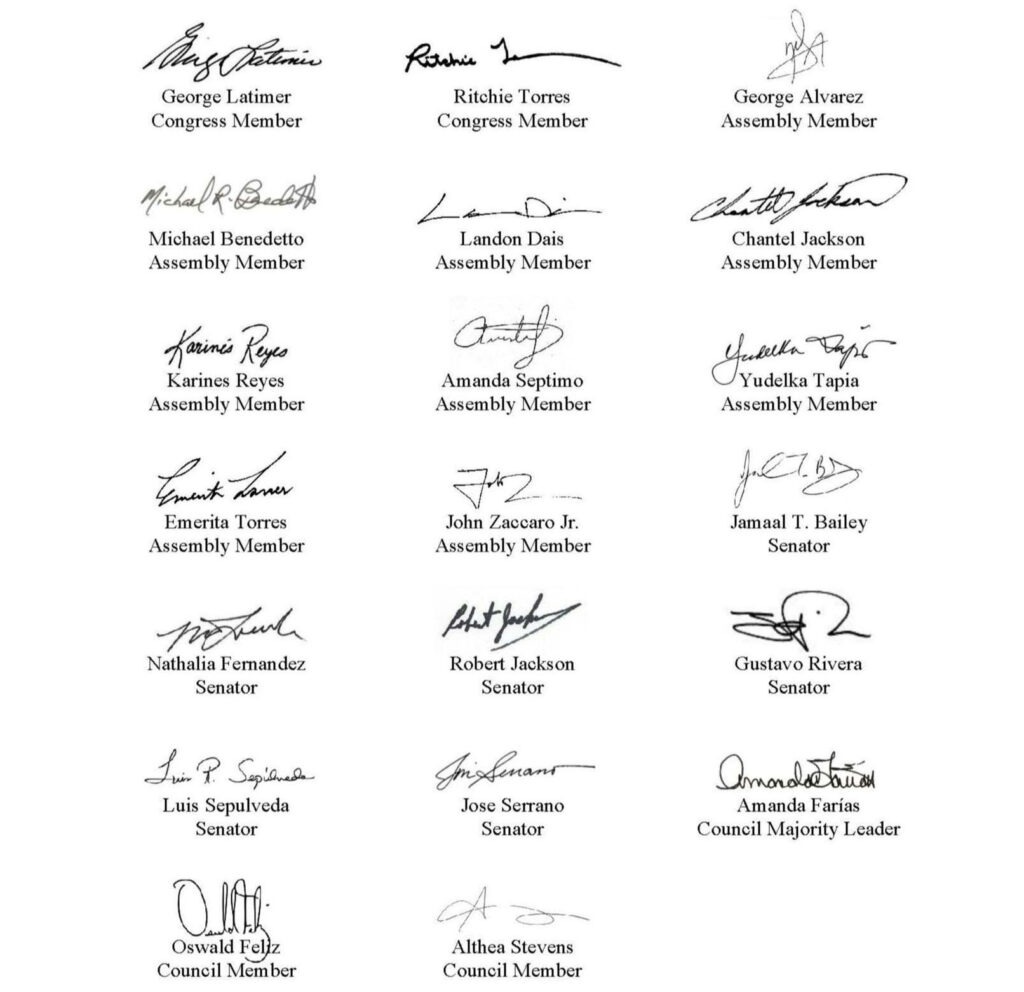 George Latimer
George Latimer
Congress Member
Ritchie T
Ritchie Torres
Congress Member
George Alvarez
Assembly Member
Michael R. Benedetto
Michael Benedetto
Assembly Member
Landon Dais
Assembly Member
Chantel Jackson
Chantel Jackson
Assembly Member
Karines Reyes
Karines Reyes
Assembly Member
Amanda Septimo
Assembly Member
Yudelka Tapia
Yudelka Tapia
Assembly Member
Emerita Torres
Assembly Member
John Zaccaro Jr.
Assembly Member
Jamaal T. Bailey
Senator
Nathalia Fernandez
Senator
Robert Jackson
Robert Jackson
Senator
Gustavo Rivera
Senator
Luis R. Sepúlveda
Luis Sepulveda
Senator
José Serrano
Jose Serrano
Senator
Amanda Farías
Amanda Farías
Council Majority Leader
Oswald Feliz
Oswald Feliz
Council Member
Althea Stevens
Council Member